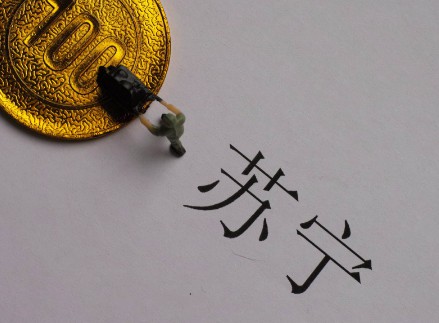 100
苏宁